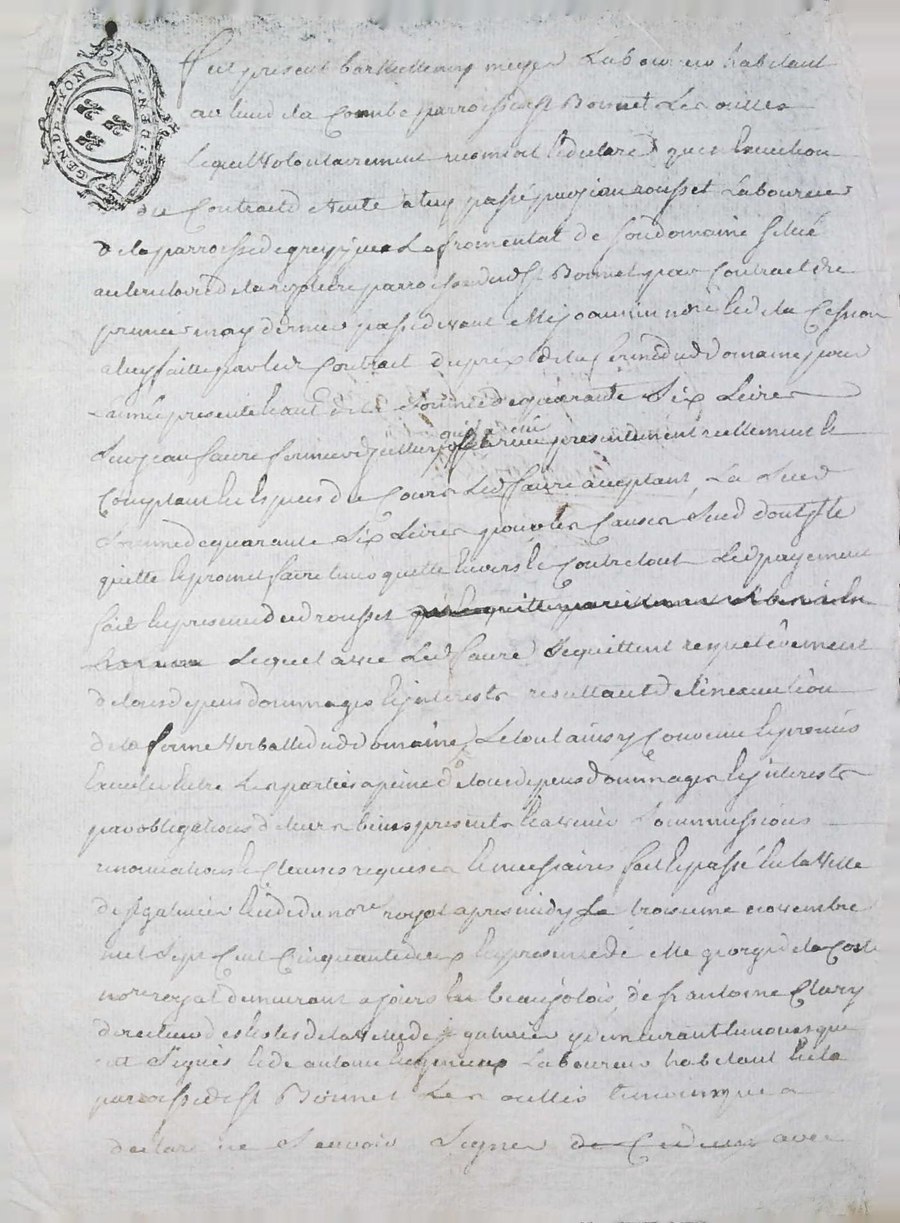 GEN · DE · LYON
fut present barthellemy meyer Laboureur habitant
au lieu de la Combe parroisse de St Bonnet Les oulles
Lequel volontairement reconnoit et declare que en execution
du Contract de vente a luy passé par jean rousset Laboureur
de la parroisse de La fromental de son domaine situé
au territoire de la parroisse dud St Bonnet par Contract du
premier may dernier passé devant Me nore et de la Cession
a luy faitte par led Contract du prix de la ferme dud domaine pour
L'année presente de la somme de quarante Six Livres
jean faure fermier presentement reellement et
Comptant en especes du Cours Led faure acceptant La Sud
Somme de quarante Six Livres pour les Causes Sud dont il le
quitte et promet faire tenir quitte envers et Contre tout Led payement
fait en presence dud rousset
Lequel avec Led faure Se quittent respectivement
de tous depens dommages et interests resultant de l'inexecution
de la ferme verballe dud domaine Le tout ainsy Convenu et promis
executer entre Les parties a peine de tous depens dommages et interests
par obligations de leurs biens presents et a venir soummissions
renonciations et Clauses requises et necessaires fait et passé en la ville
de St galmier etude du nore royal apres midy Le troisieme novembre
mil Sept Cent Cinquante deux en presence de Me de la Coste
nore royal demeurant a en beaujolois de sr antoine Clary
de la ville de St galmier y demeurant
Signés et de antoine Laboureur habitant en la
parroisse de St Bonnet Les oulles
declaré ne Scavoir Signer avec